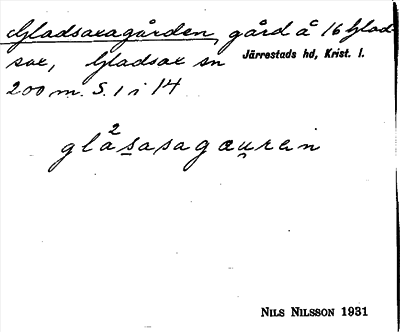 Gladsaxagården, gård å 16 Glad-
sax, Gladsax sn Järrestads hd, Krist. l.
200 m. S. 1 i 14
glå²sasagæurein
NILS NILSSON 1931